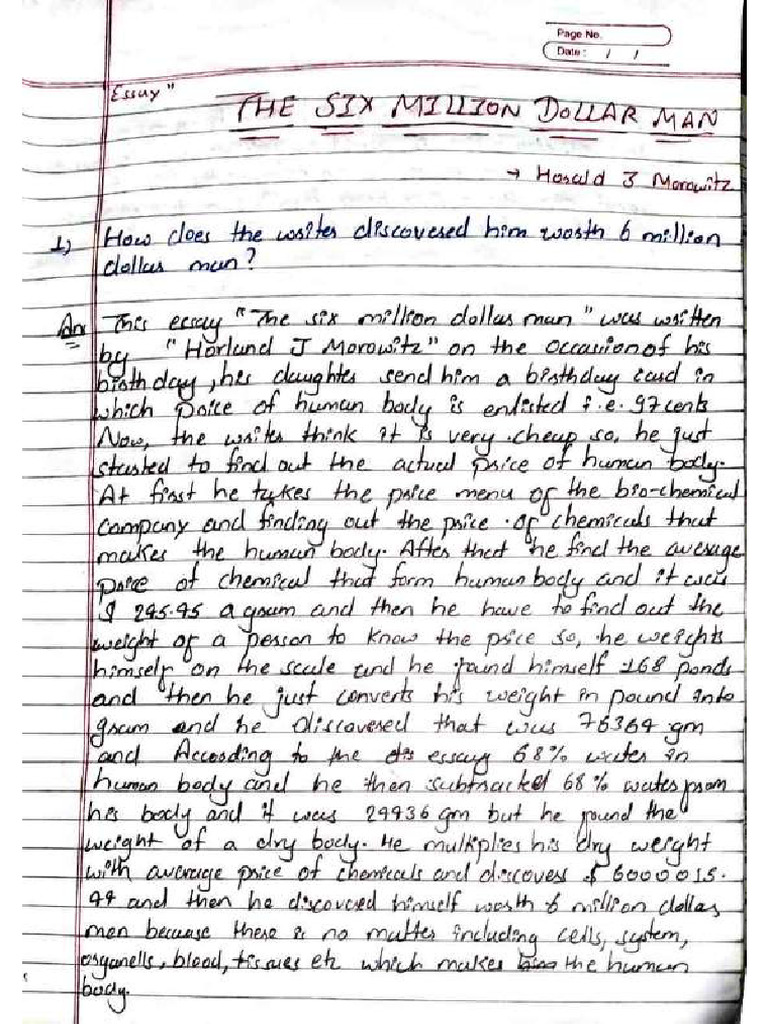 Page No.
Date: / /
Essay"
THE SIX MILLION DOLLAR MAN
→ Harold J Morowitz
1) How does the writer discovered him worth 6 million
dollar man?
Ans This essay "The six million dollar man" was written
by "Horland J Morowitz" on the occasion of his
birthday, her daughter send him a birthday card in
which price of human body is enlisted i.e. 97 cents
Now, the writer think it is very cheap so, he just
started to find out the actual price of human body.
At first he takes the price menu of the bio-chemical
company and finding out the price of chemicals that
makes the human body. After that he find the average
price of chemical that form human body and it was
$ 245.45 a gram and then he have to find out the
weight of a person to know the price so, he weights
himself on the scale and he found himself 168 ponds
and then he just converts his weight in pound into
gram and he discovered that was 76364 gm
and According to the essay 68% water in
human body and he then subtracted 68% water from
his body and it was 24436 gm but he found the
weight of a dry body. He multiplies his dry weight
with average price of chemicals and discovers $ 6000015.
44 and then he discovered himself worth 6 million dollar
men because there is no matter including cells, system,
organells, blood, tissues etc which makes the human
body.